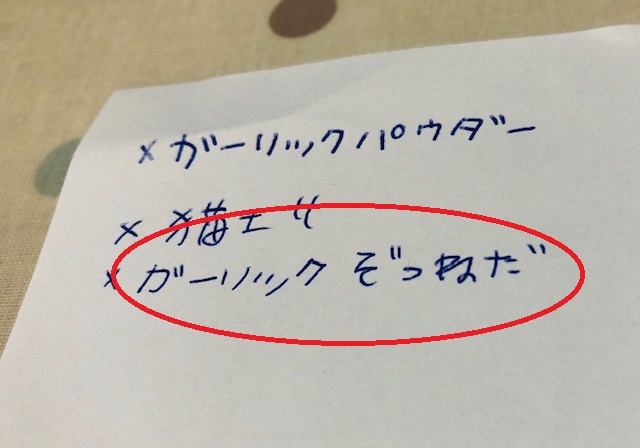 ×ガーリックパウダー
×猫エサ
×ガーリック ぞっねだ